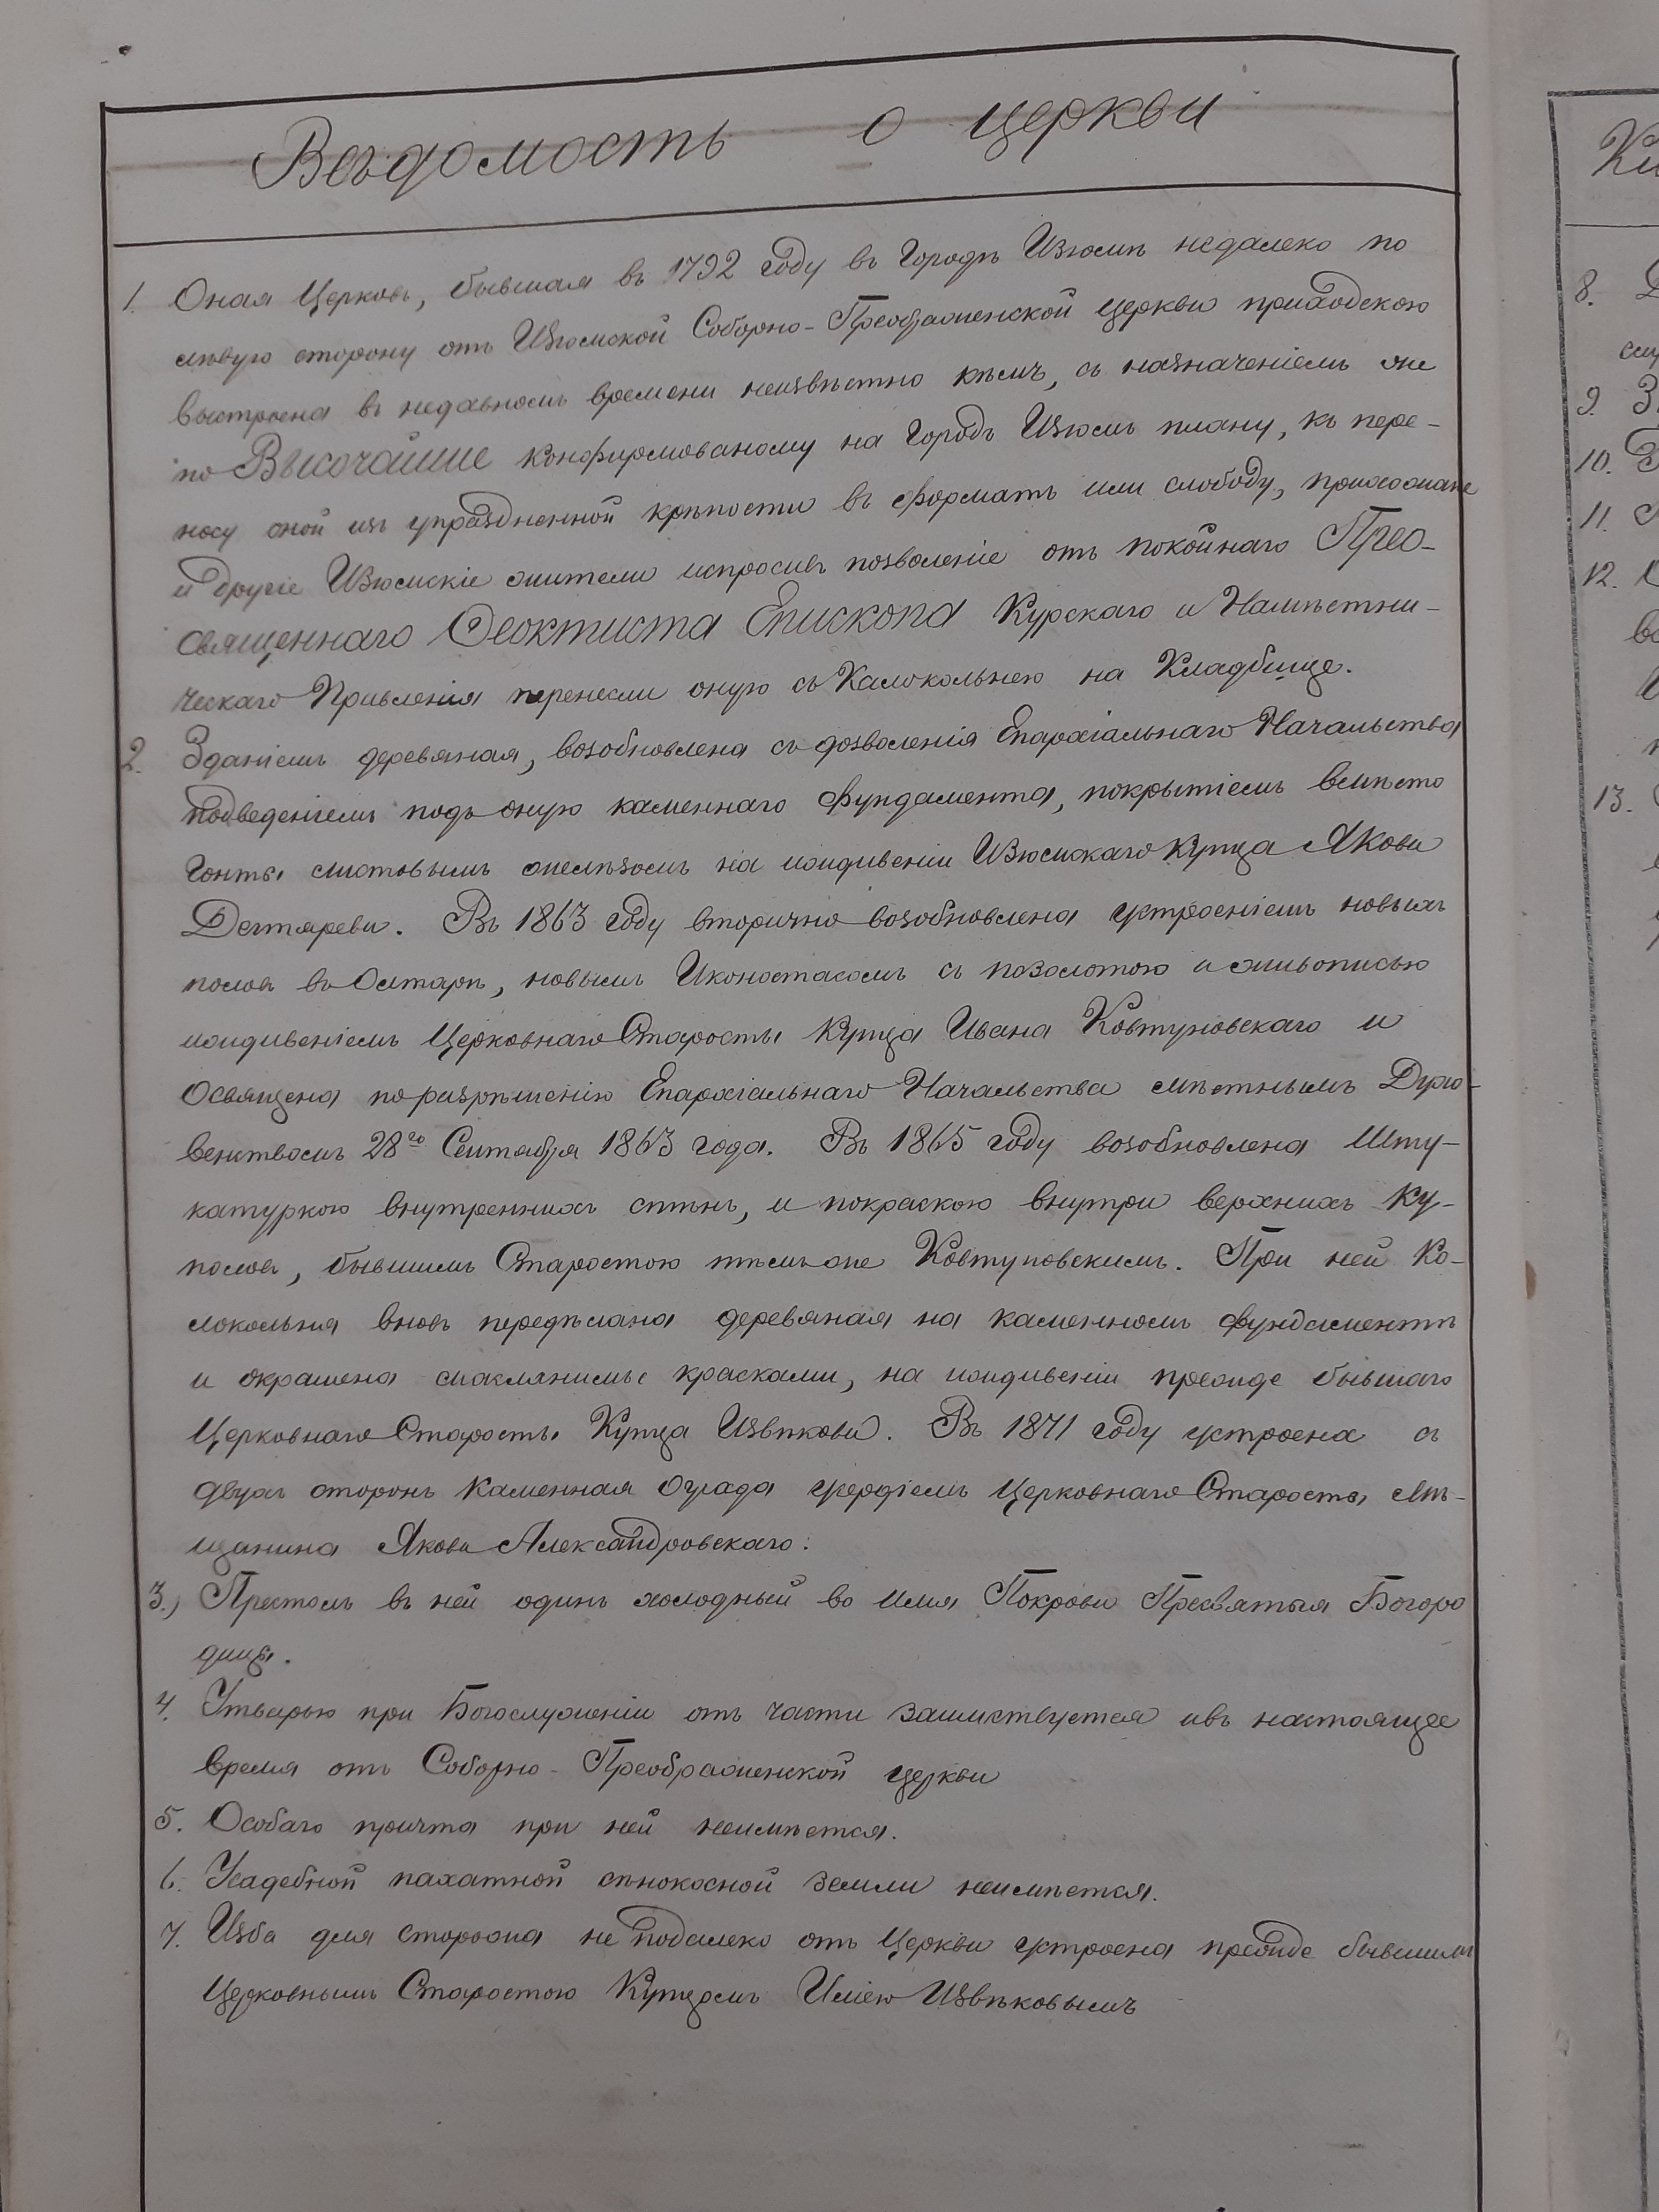 Вѣдомость о церкви
1. Оная Церковь, бывшая въ 1792 году въ Городѣ Изюмѣ недалеко по
лѣвую сторону отъ Изюмской Соборно-Преображенской церкви приходскою
выстроена въ недавномъ времени неизвѣстно кѣмъ, съ назначеніемъ же
по Высочайше конфирмованому на Городъ Изюмъ плану, къ пере-
носу оной изъ упраздненной крѣпости въ форматъ или слободу, прихожане
и другіе Изюмскіе жители испросивъ позволеніе отъ покойнаго Прео-
священнаго Ѳеоктиста Епископа Курскаго и Намѣстни-
ческаго Правленія перенесли оную съ Калокольнею на Кладбище.
2. Зданіемъ деревяная, возобновлена съ дозволенія Епархіальнаго Начальства
подведеніемъ подъ оную каменнаго фундамента, покрытіемъ вмѣсто
гонты листовымъ желѣзомъ на иждивеніи Изюмскаго купца Якова
Дегтярева. Въ 1863 году вторично возобновлена устроеніемъ новыхъ
половъ въ Олтарѣ, новымъ Иконостасомъ съ позолотою и живописью
иждивеніемъ Церковнаго Старосты Купца Ивана Ковтуновскаго и
Освящена по разрѣшенію Епархіальнаго Начальства мѣстнымъ Духо-
венствомъ 28го Сентября 1863 года. Въ 1865 году возобновлена Шту-
катуркою внутреннихъ стѣнъ, и покраскою внутри верхнихъ Ку-
половъ, бывшимъ Старостою тѣмъ же Ковтуновскимъ. При ней Ко-
локольня вновь передѣлана деревяная на каменномъ фундаментѣ
и окрашена маслянимы красками, на иждивеніи прежде бывшаго
Церковнаго Старосты Купца Извѣкова. Въ 1871 году устроена съ
двухъ сторонъ Каменная Ограда усердіемъ Церковнаго Старосты Мѣ-
щанина Якова Александровскаго.
3.) Престолъ въ ней одинъ холодный во Имя Покрова Пресвятыя Богоро
дицы.
4. Утварью при Богослуженіи отъ части заимствуется ивъ настоящее
время отъ Соборно-Преображенской церкви
5. Особаго причта при ней неимѣется.
6. Усадебной пахатной сѣнокосной земли неимѣется.
7. Изба для сторожа не подалеко отъ Церкви устроена прежде бывшимъ
Церковнымъ Старостою Купцомъ Ильею Извѣковымъ
8.
9. З
10.
11.
12.
13.